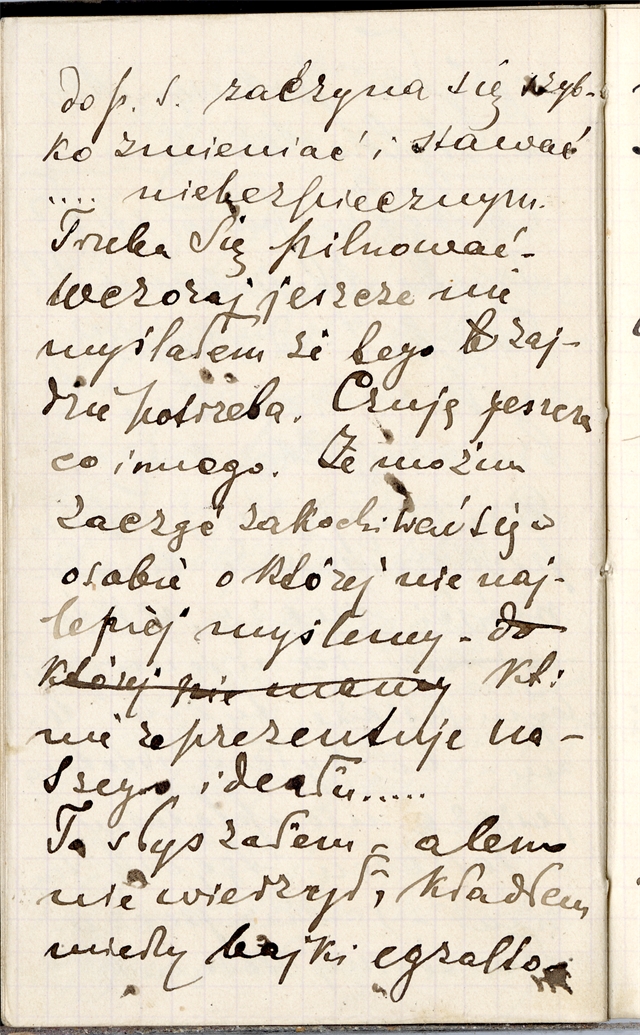 do p. s. zaczyna się szyb-
ko zmieniać i stawać
.... niebezpiecznym.
Trzeba się pilnować -
wczoraj jeszcze nie
myślałem że tego zaj-
dzie potrzeba. Czuję jeszcze
co innego. Że można
zacząć zakochiwać się w
osobie o której nie naj-
lepiej myślemy - do
której nie mamy kt:
nie reprezentuje na-
szego ideału.....
To słyszałem - alem
nie wierzył, kładłem
między bajki egzalto-